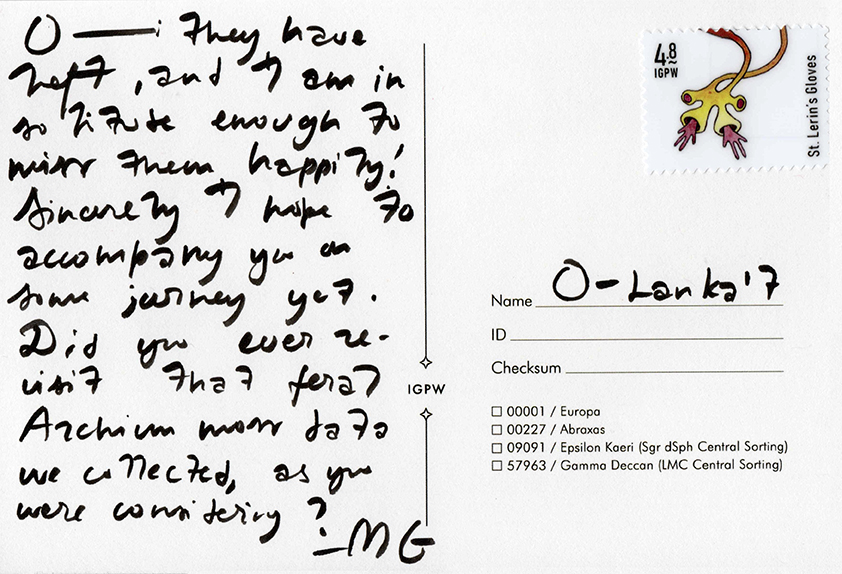 O— they have
left, and I am in
solitude enough to
miss them happily!
Sincerely I hope to
accompany you on
some journey yet.
Did you ever re-
visit that feral
Archium moss data
we collected, as you
were considering?
—MG
4.8
IGPW
St. Lerin's Gloves
Name O-Lanka'7
ID
Checksum
IGPW
☐ 00001 / Europa
☐ 00227 / Abraxas
☐ 09091 / Epsilon Kaeri (Sgr dSph Central Sorting)
☐ 57963 / Gamma Deccan (LMC Central Sorting)